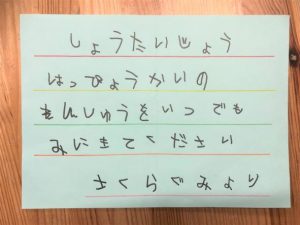 しょうたいじょう
はっぴょうかいの
れんしゅうをいつでも
みにきてください
さくらぐみより